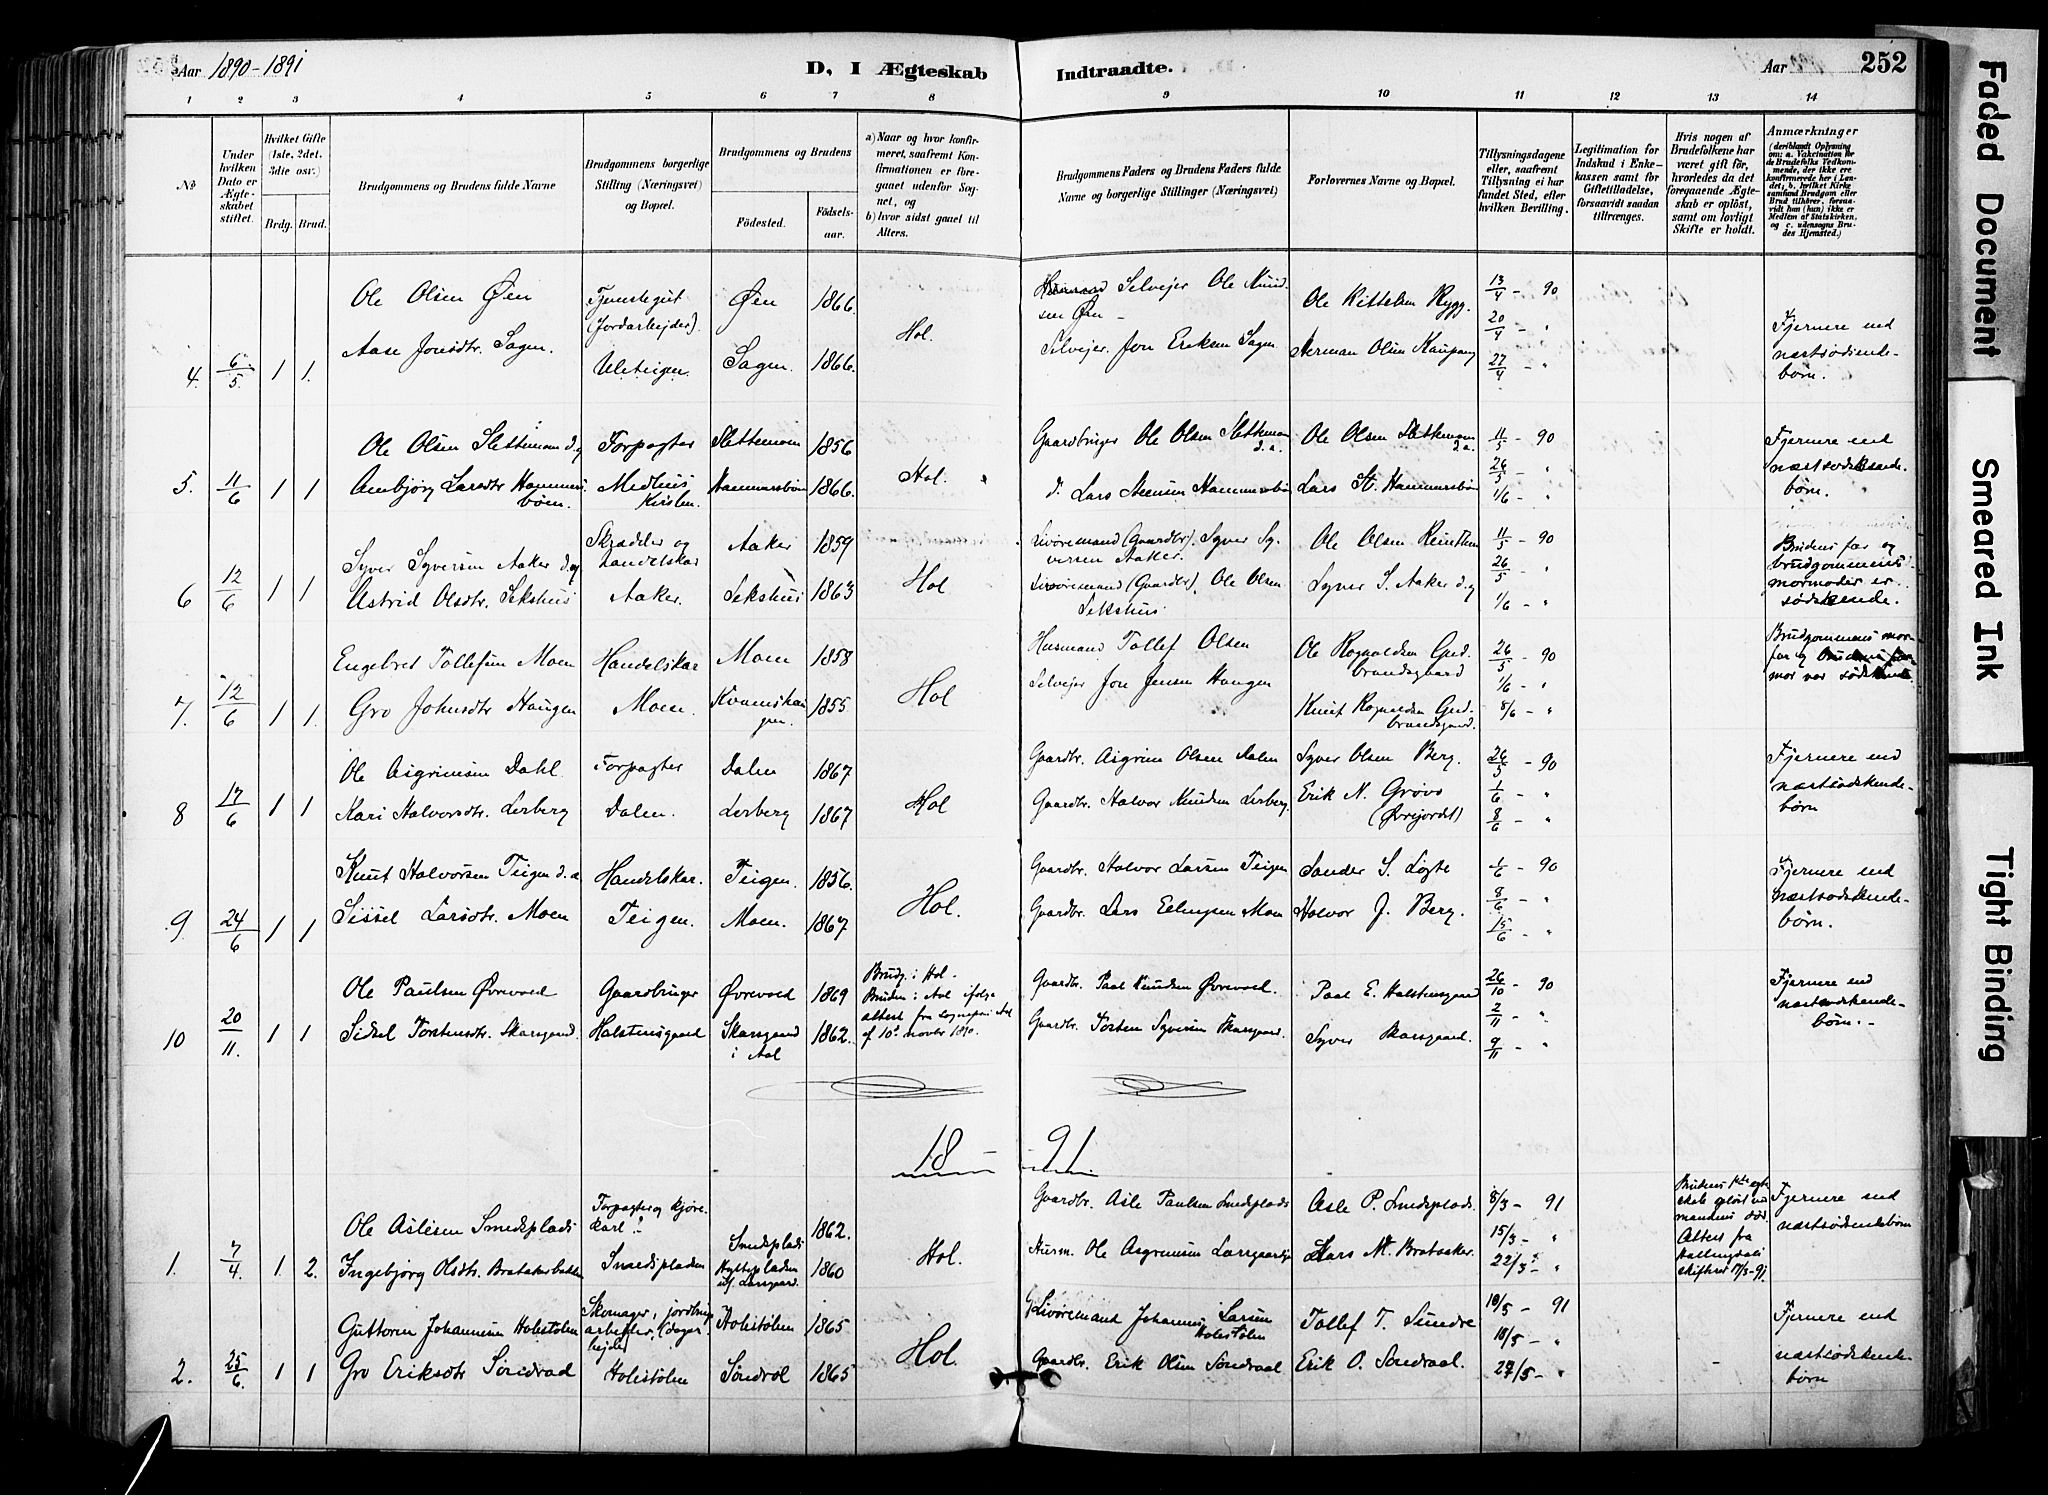 Aar 1890-1891
D, I Ægteskab Indtraadte.
Aar 252
1 2 3 4 5 6 7 8 9 10 11 12 13 14
No
Under hvilken Dato er Ægteskabet stiftet.
Hvilket Gifte (1ste, 2det, 3die osv.)
Brdg. Brud.
Brudgommens og Brudens fulde Navne
Brudgommens borgerlige Stilling (Næringsvei) og Bopæl.
Brudgommens og Brudens
Fødested.
Fødselsaar.
a) Naar og hvor konfirmeret, saafremt Konfirmationen er foregaaet udenfor Sognet, og
b) hvor sidst gaaet til Alters.
Brudgommens Faders og Brudens Faders fulde Navne og borgerlige Stillinger (Næringsvei)
Forlovernes Navne og Bopæl.
Tillysningsdagene eller, saafremt Tillysning ei har fundet Sted, efter hvilken Bevilling.
Legitimation for Indskud i Enkekassen samt for Giftetilladelse, forsaavidt saadan tiltrænges.
Hvis nogen af Brudefolkene har været gift før, hvorledes da det foregaaende Ægteskab er opløst, samt om lovligt Skifte er holdt.
Anmærkninger (deriblandt Oplysning om: a. Vakcination for de Brudefolks Vedkommende, der ikke ere konfirmerede her i Landet; b. hvilket Kirkesamfund Brudgom eller Brud tilhører, forsaavidt han (hun) ikke er Medlem af Statskirken, og c. udensogns Brudes Hjemsted.)
4. 6/5 1 1.
Ole Olsen Øen
Aase Jonsdtr. Sagen.
Tjenestegut (Jordarbejder).
Øen 1866.
Sagen. 1866.
Hol.
Selvejer Ole Knudsen Øen
Selvejer. Jon Eriksen Sagen
Ole Kittelsen Rygg.
Herman Olsen Kaupang
13/4 - 90
20/4 - "
27/4 - "
Fjernere end næstsødskendebørn.
5. 11/6 1 1
Ole Olsen Slettemoen d.y
Ambjørg Larsdtr. Hammersbøen.
Forpagter
Slettemoen 1856
Hammersbøen 1866.
Hol.
Gaardbruger Ole Olsen Slettemoen d.æ.
Ole Olsen Slettemoen d.æ.
Lars St. Hammersbøen
11/5 - 90
26/5 - "
1/6 - "
Fjernere end næstsødskendebørn.
6 12/6 1 1
Syver Syversen Aaker d.y
Astrid Olsdtr. Sekshus
Skrædder og handelskar
Aaker.
Aaker 1859
Sekshus 1863
Hol
Livøremand (Gaardbr). Syver Syversen Aaker.
Livøremand (Gaardbr). Ole Olsen Sekshus
Ole Olsen
Syver S. Aaker d.y
11/5 - 90
26/5 - "
1/6 - "
Brudens far og brudgommens mormoder er sødskende.
7. 12/6 1 1.
Engebret Tollefsen Moen
Gro Johnsdtr Haugen
Handelskar
Moen.
Moen 1858
1855
Hol
Husmand Tollef Olsen
Selvejer Jon Jensen Haugen
Ole Rognaldsen Gudbrandsgaard
Knut Rognaldsen Gudbrandsgaard.
26/5 - 90
1/6 - "
8/6 - "
Brudgommens morfar og Brudens farmor var sødskende.
8 17/6 1 1
Ole Asgrimsen Dahl.
Kari Halvorsdtr. Lerberg
Forpagter
Dalen.
Dalen 1867
Lerberg 1867
Hol
Gaardbr. Asgrim Olsen Dalen
Gaardbr. Halvor Knudsen Lerberg.
Syver Olsen Berg.
Erik N. Grøvo (Øvrejordet)
26/5 - 90
1/6 - "
8/6 - "
Fjernere end næstsødskendebørn
9 24/6 1 1
Knut Halvorsen Teigen d.æ
Sissel Larsdtr. Moen
Handelskar.
Teigen.
Teigen. 1856.
Moen. 1867
Hol.
Gaardbr. Halvor Larsen Teigen
Gaardbr. Lars Ellingsen Moen
Sander S. Løgte
Halvor J. Berg.
1/6 - 90
8/6 - "
15/6 - "
Fjernere end næstsødskendebørn.
10 20/11. 1 1
Ole Paulsen Øvrevold
Sidsel Torstensdtr. Skarsgaard.
Gaardbruger
Holstensgaard
Øvrevold 1869
Skarsgaard i Aal 1862.
Brudg. i Hol.
Bruden i Aal ifølge attest fra sognepr. i Aal af 10. novbr 1890.
Gaardbr. Paal Knudsen Øvrevold.
Gaardbr. Torsten Syversen Skarsgaard.
Paal E. Holstensgaard
Syver Skarsgaard.
26/10 - 90
2/11 - "
9/11 - "
Fjernere end næstsødskendebørn.
18 - 91
1. 7/4. 1. 2.
Ole Aslesen Smedsplads
Ingebjørg Olsdtr. Brataker
Forpagter og kjørekarl
Smedspladsen
Smedsplads 1862.
1860
Hol.
Gaardbr. Asle Paulsen Smedsplads
Husm. Ole Asgrimsen
Asle P. Smedsplads.
Lars M. Brataker.
8/3 - 91
15/3 - "
22/3 - "
Brudens 1ste egteskab opløst ved mandens død. Attest fra Hallingdals skifteret 17/3-91
Fjernere end næstsødskendebørn
2. 25/6. 1 1
Guttorm Johannesen Holestølen
Gro Eriksdtr Søndraal
Skomager,
Holestølen
Holestølen 1865
1865
Hol.
Livøremand Johannes Larsen Holestølen
Gaardbr. Erik Olsen Søndraal
Tollef T. Sundre
Erik O. Søndraal.
10/5 - 91
18/5 - "
27/5 - "
Fjernere end næstsødskendebørn
Faded Document
Smeared Ink
Tight Binding